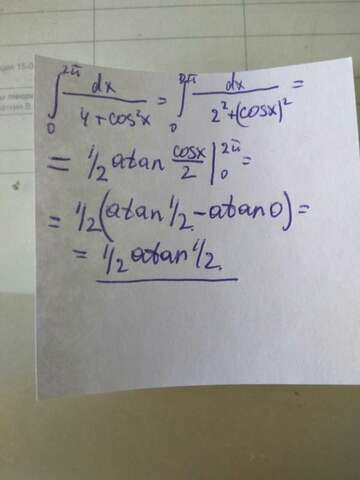 ция 15-0
∫₀^2π dx / 4+cos²x = ∫₀^2π dx / 2²+(cosx)² =
= 1/2 atan cosx/2 |₀^2π =
= 1/2 (atan 1/2 - atan 0) =
= 1/2 atan 1/2